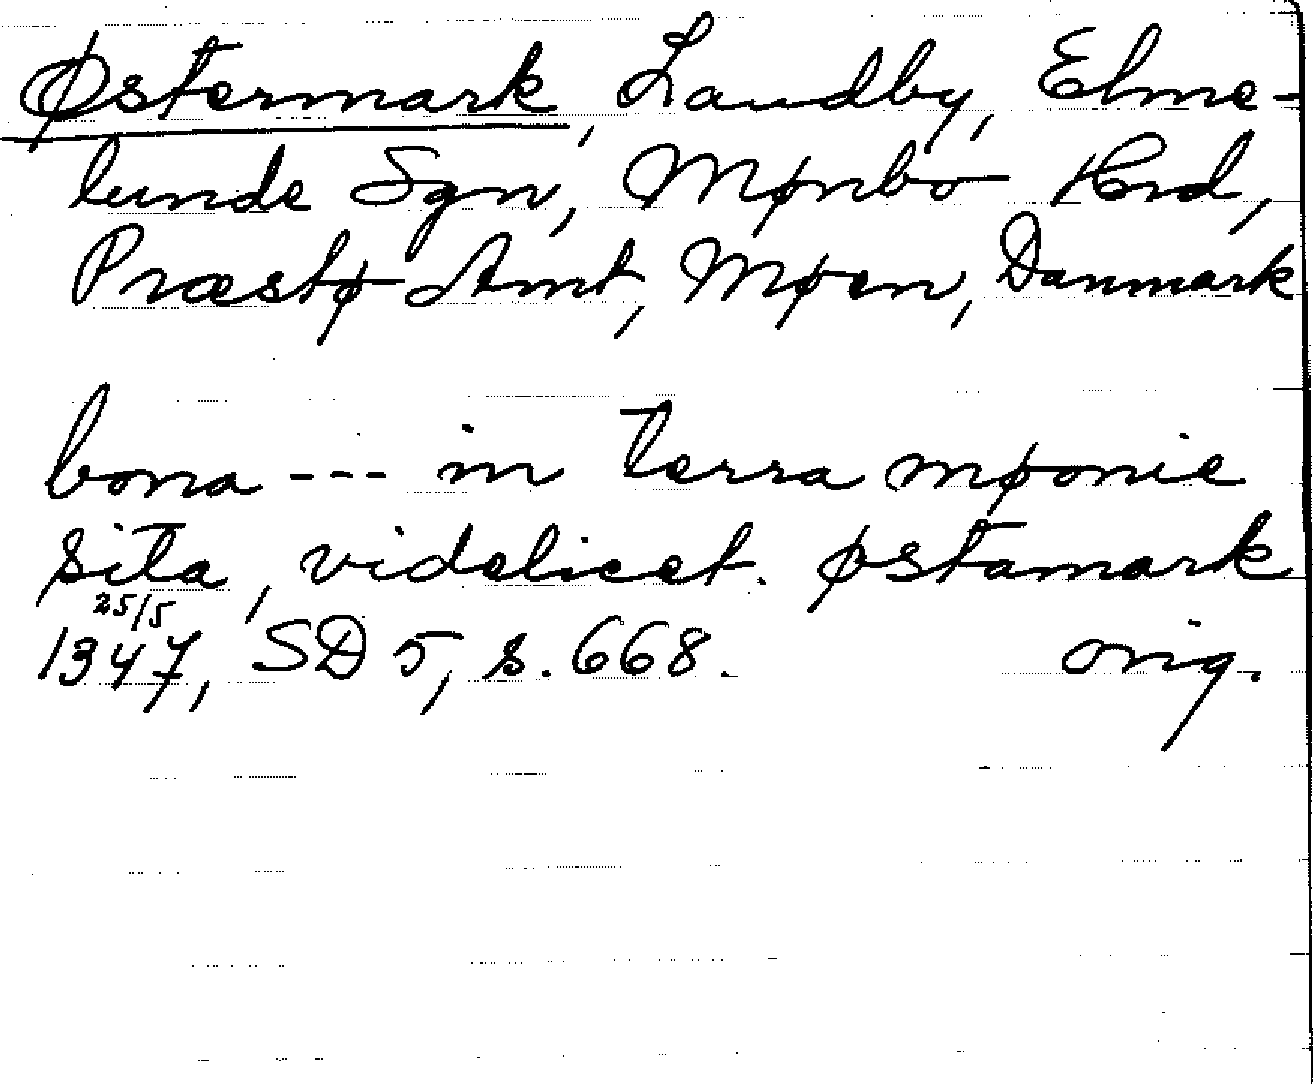 Østermark, Landby, Elme-
lunde Sgn, Mønbo Hrd,
Præstø Amt, Møen, Danmark
bona --- in terra mønie
sita, videlicet. østamark
25/5
1347, SD 5, s. 668. orig.